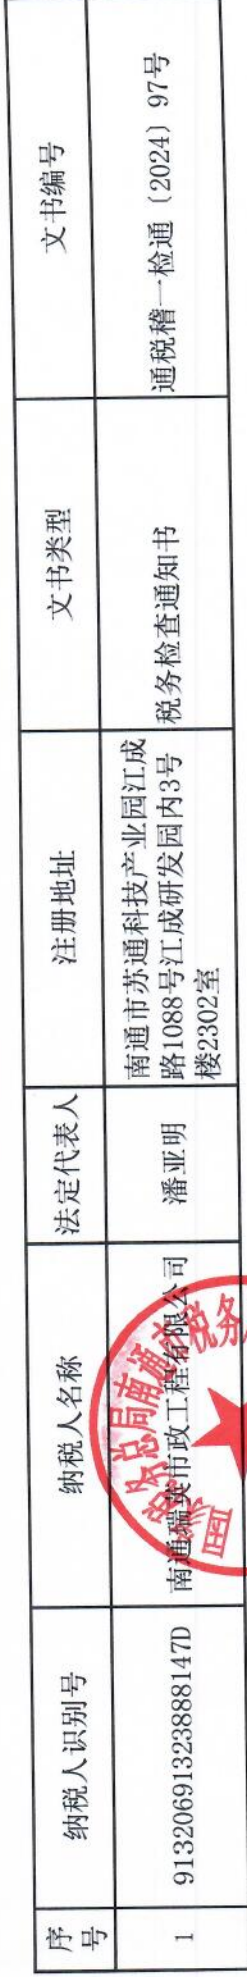 序号
纳税人识别号
纳税人名称
法定代表人
注册地址
文书类型
文书编号
1
91320691323888147D
南通瑞英市政工程有限公司
潘亚明
南通市苏通科技产业园江成
路1088号江成研发园内3号
楼2302室
税务检查通知书
通税稽一检通〔2024〕97号
国家税务总局南通市税务